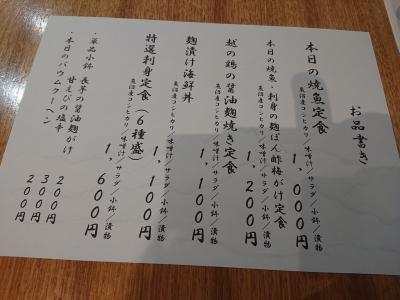 お品書き
本日の焼魚定食
魚沼産コシヒカリ／味噌汁／サラダ／小鉢／漬物
１，０００円
本日の焼魚・刺身の麹ぽん酢梅がけ定食
魚沼産コシヒカリ／味噌汁／サラダ／小鉢／漬物
１，２００円
越の鶏の醤油麹焼き定食
魚沼産コシヒカリ／味噌汁／サラダ／小鉢／漬物
１，１００円
麹漬け海鮮丼
魚沼産コシヒカリ／味噌汁／サラダ／小鉢／漬物
１，１００円
特選刺身定食（６種盛）
魚沼産コシヒカリ／味噌汁／サラダ／小鉢／漬物
１，６００円
・単品小鉢　長芋の醤油麹がけ　２００円
甘えびの塩辛　３００円
・本日のバウムクーヘン　２００円